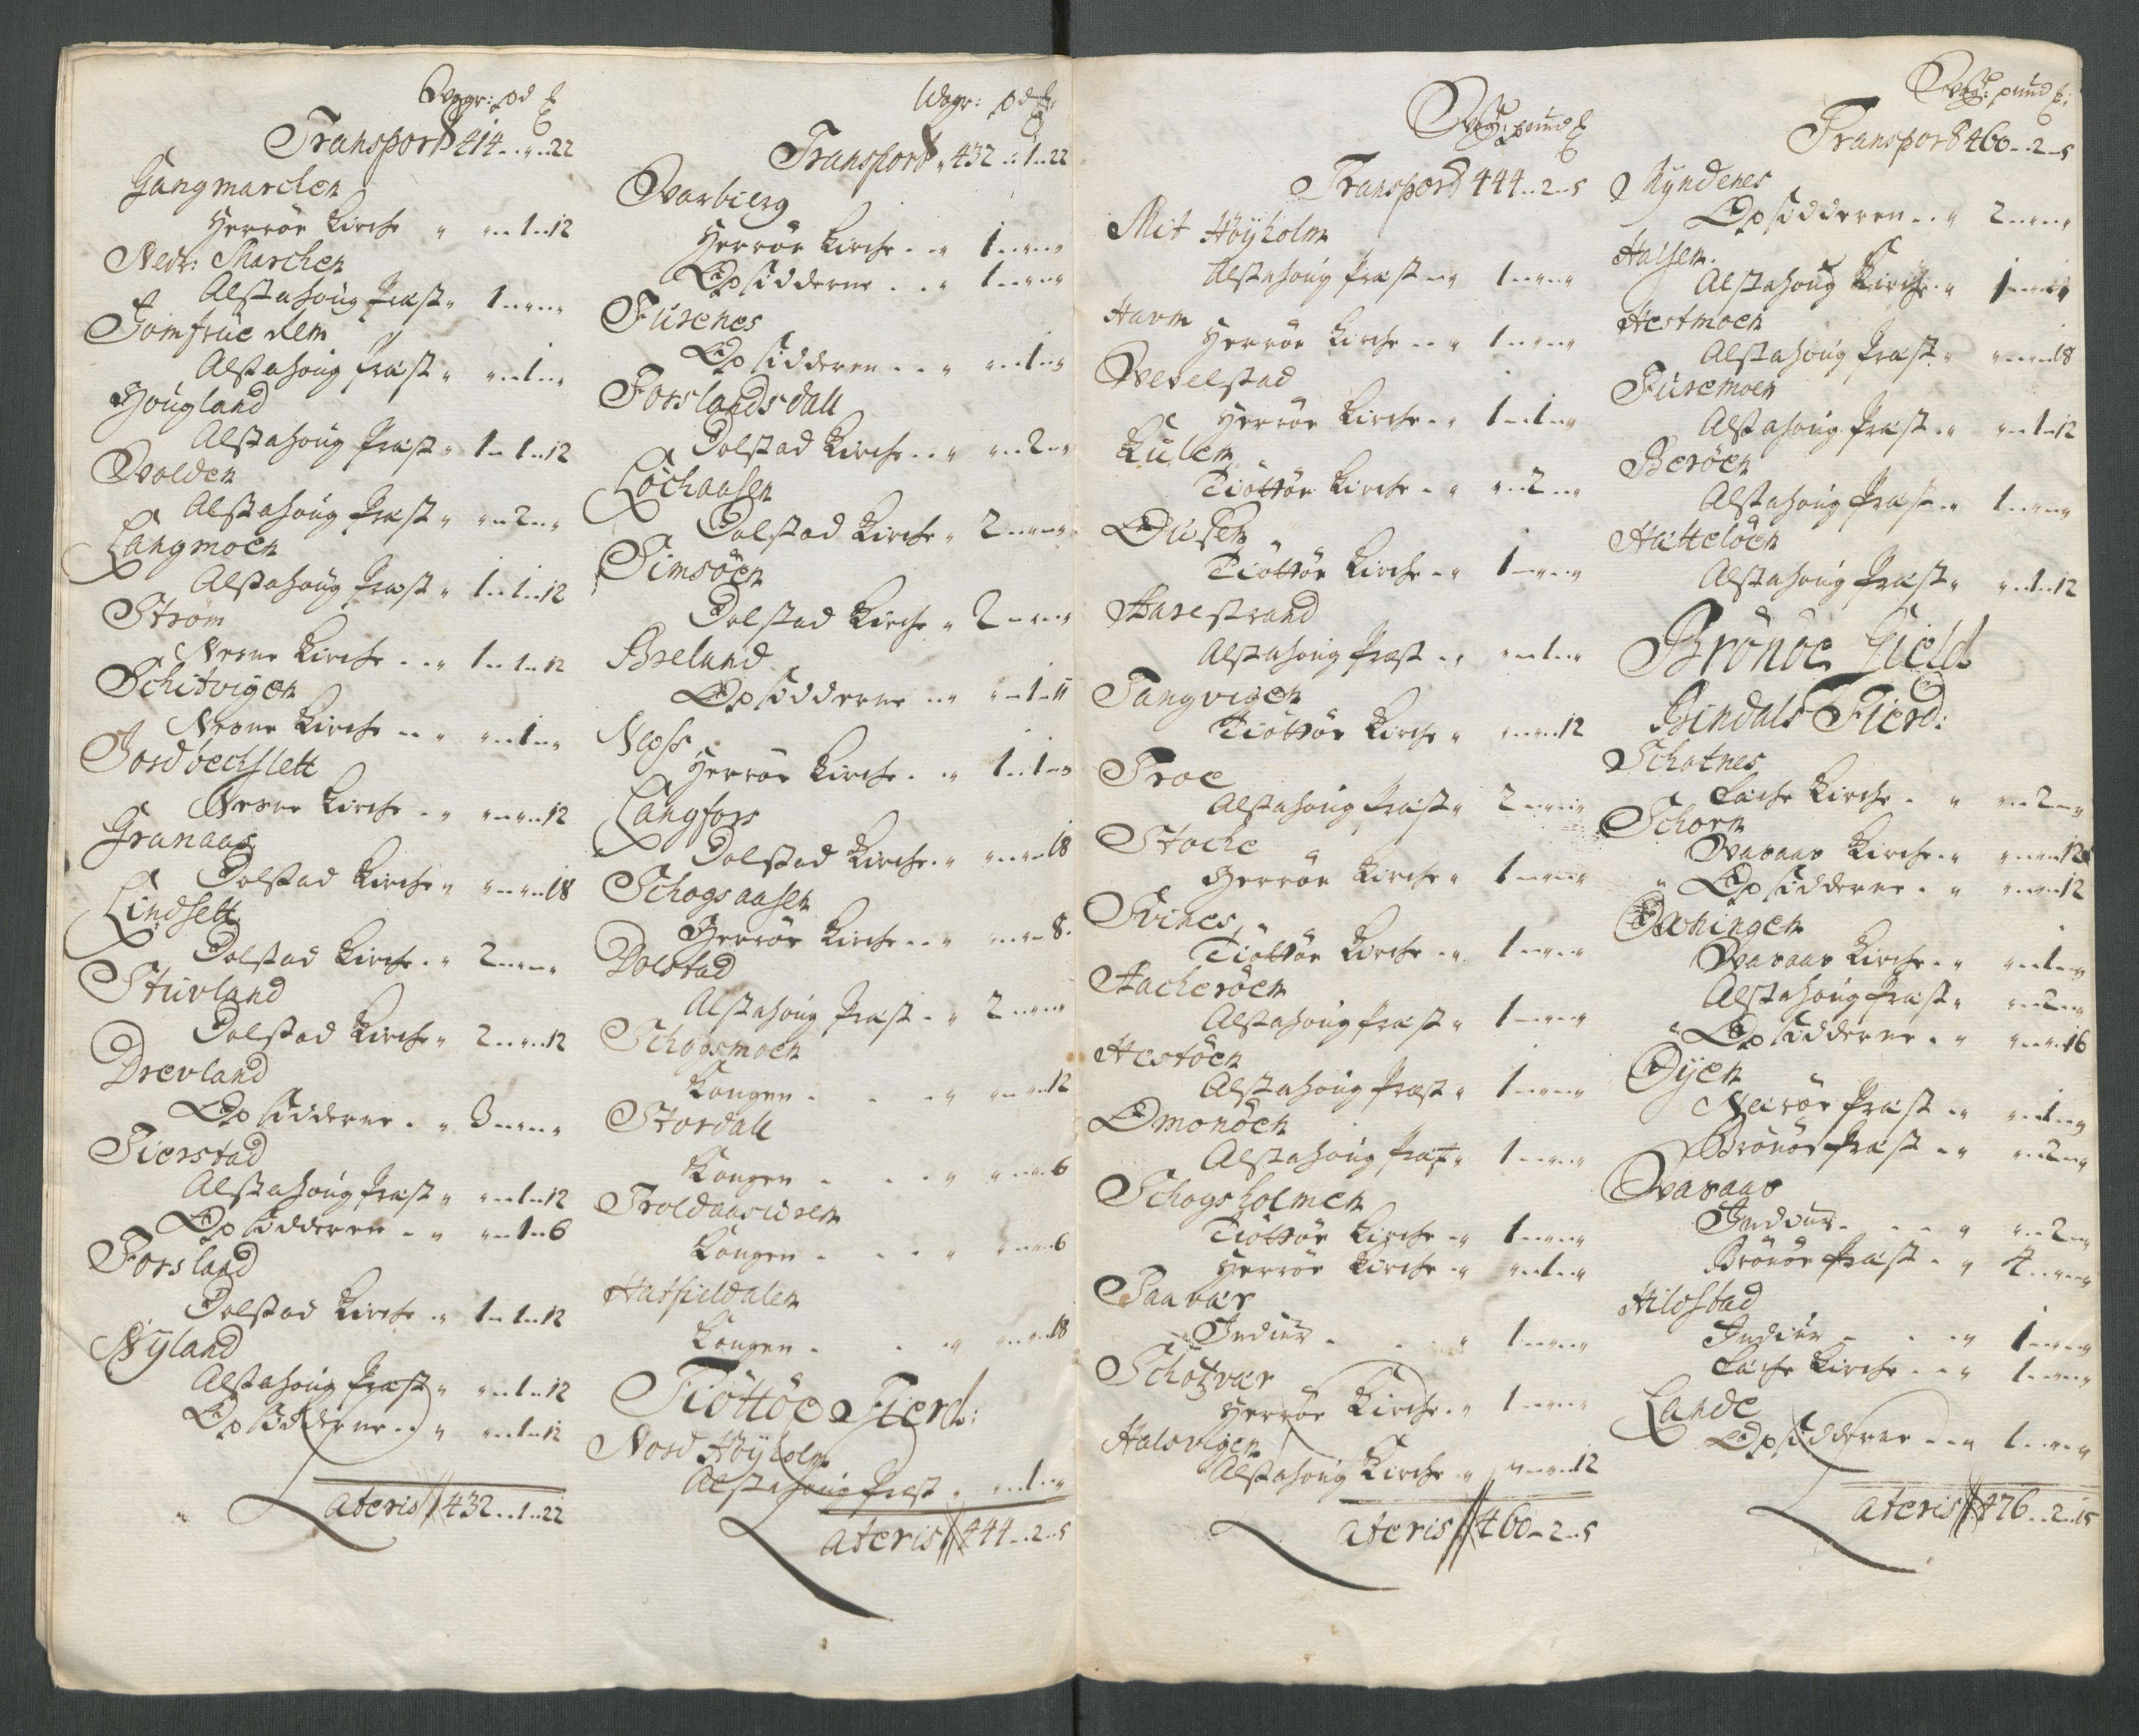 Wogr: pd ℔
Transport 414 .. „ .. 22
Gangmarchen
Herröe Kirche „ „ .. 1 .. 12
Nedr: Marchen
Alstahoug Præst „ 1 .. „ .. „
Jomfrue Rem
Alstahoug Præst „ „ .. 1 .. „
Hougland
Alstahoug Præst „ 1 .. 1 .. 12
Wolden
Alstahoug Præst „ „ .. 2 .. „
Langmoen
Alstahoug Præst „ 1 .. 1 .. 12
Strøm
Nesne Kirche .. „ 1 .. 1 .. 12
Schitvigen
Nesne Kirche .. „ „ .. 1 .. „
Jordbechslett
Nesne Kirche .. „ „ .. „ .. 12
Granaas
Dolstad Kirche „ „ .. „ .. 18
Lindsett
Dolstad Kirche .. „ 2 .. „ .. „
Stuvland
Dolstad Kirche „ 2 .. „ .. 12
Drevland
Opsidderne .. „ 3 .. „ .. „
Tierstad
Alstahoug Præst „ „ .. 1 .. 12
Opsidderen .. „ „ .. 1 .. 6
Forsland
Dolstad Kirche .. „ 1 .. 1 .. 12
Nyland
Alstahoug Præst „ „ .. 1 .. 12
Opsidderne .. „ „ .. 1 .. 12
Lateris // 432 .. 1 .. 22
Wogr: pd ℔:
Transport „ 432 .. 1 .. 22
Warbierg
Herröe Kirche .. „ 1 .. „ .. „
Opsidderne .. „ 1 .. „ .. „
Fusenes
Opsidderen .. „ „ .. 1 .. „
Forslandsdall
Dolstad Kirche .. „ „ .. 2 .. „
Lochaasen
Dolstad Kirche „ 2 .. „ .. „
Simsöen
Dolstad Kirche „ 2 .. „ .. „
Breland
Opsidderne .. „ „ .. 1 .. 11
Ness
Herröe Kirche .. „ 1 .. 1 .. „
Langfors
Dolstad Kirche .. „ „ .. „ .. 18
Schogsaasen
Herröe Kirche .. „ „ .. „ .. 8
Dolstad
Alstahoug Præst .. „ 2 .. „ .. „
Schogsmoen
Kongen . . . „ „ .. „ .. 12
Stordall
Kongen . . . „ „ .. „ .. 6
Troldaasuren
Kongen . . . „ „ .. „ .. 6
Hatfieldalen
Kongen . . . „ „ .. „ .. 18
Tiöttöe Fierd:
Nord Höyholm
Alstahoug Præst „ „ .. 1 .. „
Lateris // 444 .. 2 .. 5
Wog: pund ℔
Transport 444 .. 2 .. 5
Mit Höyholm
Alstahoug Præst .. „ 1 .. „ .. „
Havn
Herröe Kirche .. „ 1 .. „ .. „
Wevelstad
Herröe Kirche .. „ 1 .. 1 .. „
Kulen
Tiöttöe Kirche .. „ „ .. 2 .. „
Tiöttöe Kirche .. „ 1 .. „ .. „
Harestrand
Alstahoug Præst .. „ „ .. 1 .. „
Tangvigen
Tiöttöe Kirche „ „ .. „ .. 12
Troe
Alstahoug Præst „ 2 .. „ .. „
Stoche
Herröe Kirche „ 1 .. „ .. „
Svines
Tiöttöe Kirche .. „ 1 .. „ .. „
Hacheröen
Alstahoug Præst „ 1 .. „ .. „
Hestöen
Alstahoug Præst „ 1 .. „ .. „
Omonöen
Alstahoug Præst „ 1 .. „ .. „
Schogsholmen
Tiöttöe Kirche .. „ 1 .. „ .. „
Herröe Kirche .. „ „ .. 1 .. „
Saavær
Indvur . . „ 1 .. „ .. „
Schotvær
Herröe Kirche .. „ 1 .. „ .. „
Halsvigen
Alstahoug Kirche „ „ .. „ .. 12
Lateris // 460 .. 2 .. 5
Wog: pund ℔:
Transport 460 .. 2 .. 5
Ryndenes
Opsidderen .. „ 2 .. „ .. „
Halsen
Alstahoug Kirche .. „ 1 .. „ .. „
Hestmoen
Alstahoug Præst „ „ .. „ .. 18
Furemoen
Alstahoug Præst .. „ „ .. 1 .. 12
Beröen
Alstahoug Præst .. „ 1 .. „ .. „
Hattelöen
Alstahoug Præst „ „ .. 1 .. 12
Brönöe Gield
Bindals Fierd:
Schotnes
Lache Kirche .. „ „ .. 2 .. „
Schorn
Wasaas Kirche .. „ „ .. „ .. 12
Opsidderne .. „ „ .. „ .. 12
Wasaas Kirche .. „ „ .. 1 .. „
Alstahoug Præst „ „ .. 2 .. „
Opsidderne .. „ „ .. „ .. 16
Öyen
Næröe Præst .. „ „ .. 1 .. „
Brönöe Præst .. „ „ .. 2 .. „
Wasaas
Brönöe Præst .. „ 4 .. „ .. „
Hildstad
Lache Kirche .. „ 1 .. „ .. „
Lande
Opsidderne .. „ 1 .. „ .. „
Lateris // 476 .. 2 .. 15